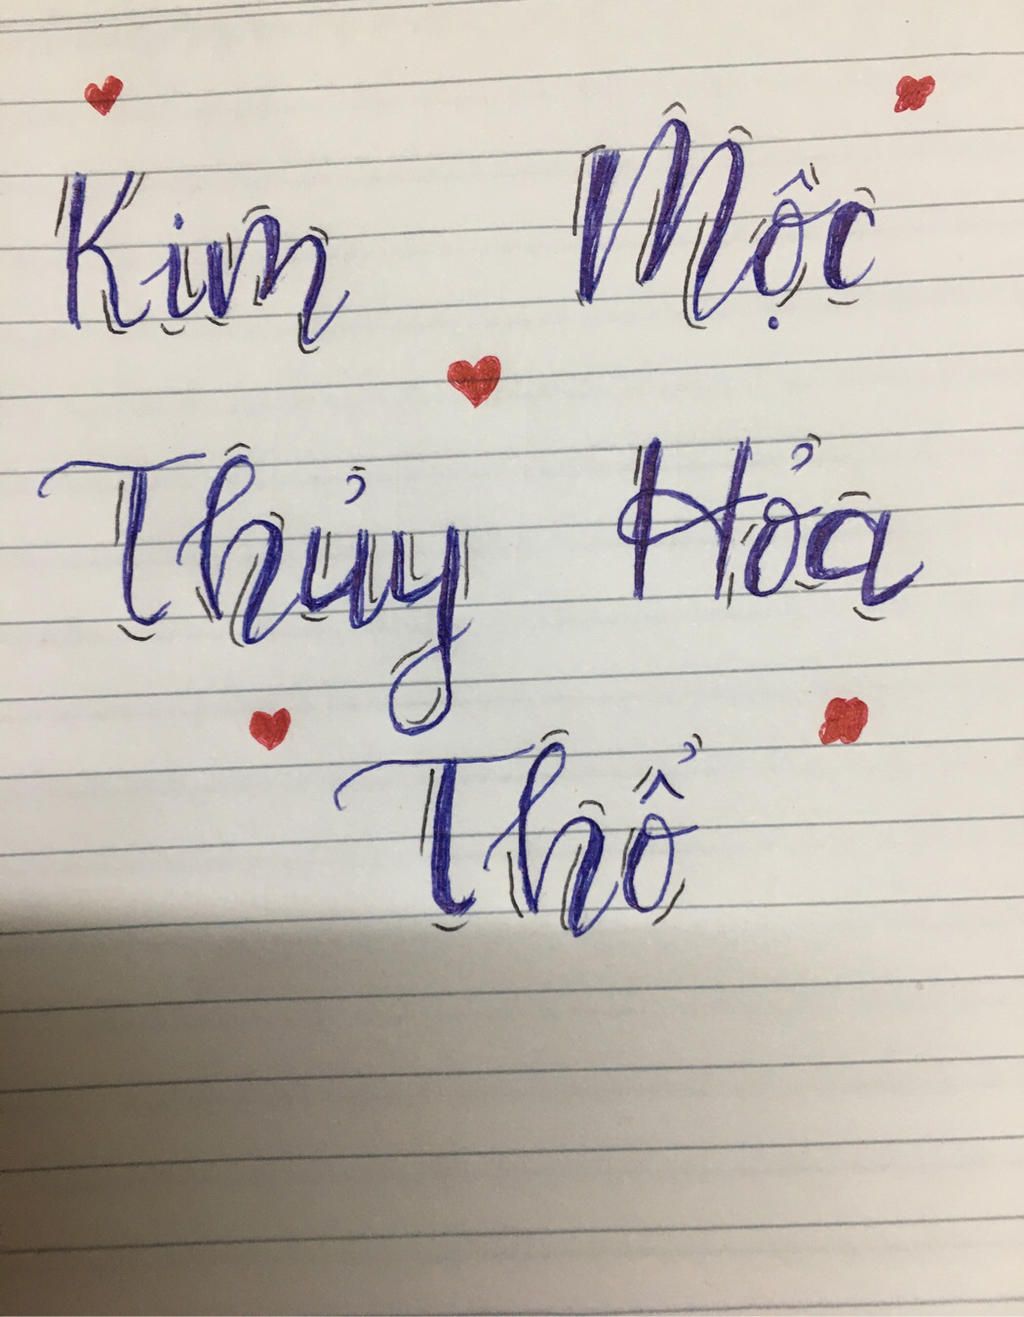 Kim Mộc
Thủy Hỏa
Thổ